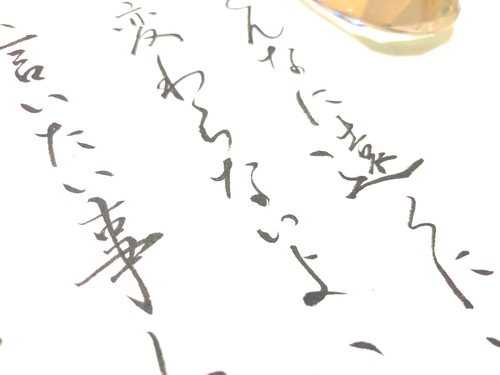 んなに遠くた
変わらないよ
言いたい事